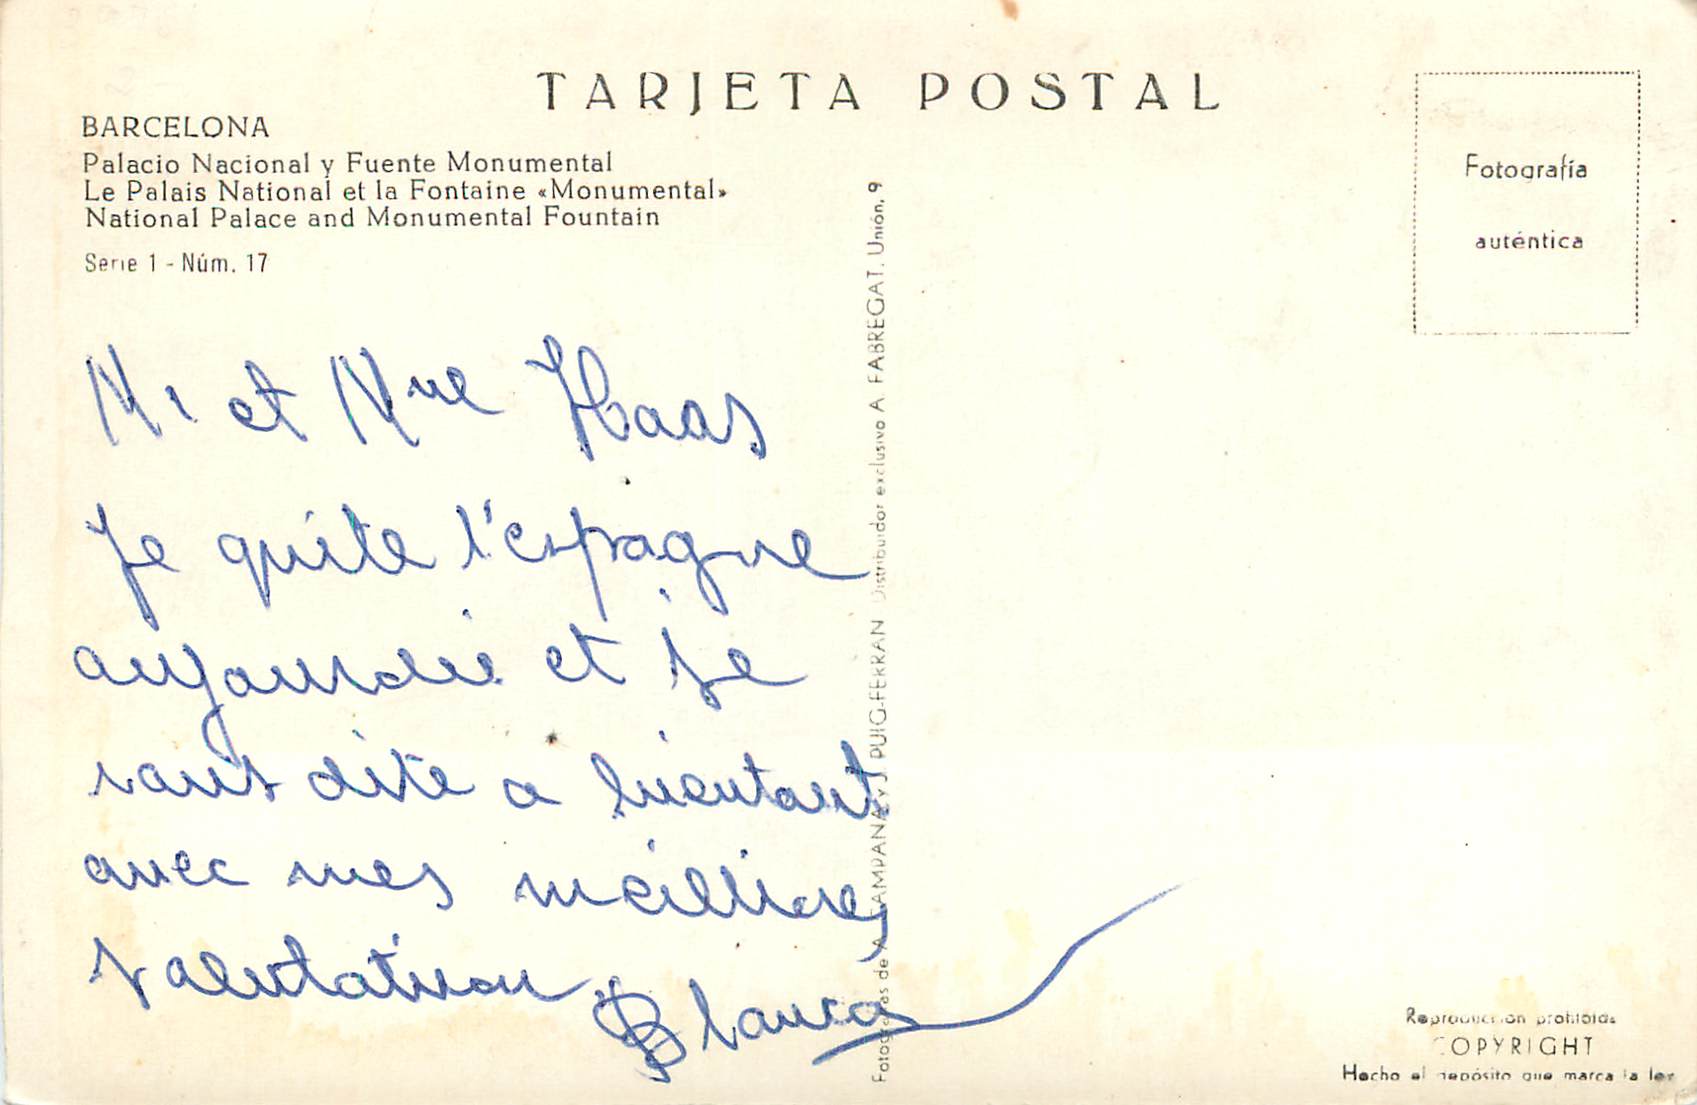 TARJETA POSTAL
BARCELONA
Palacio Nacional y Fuente Monumental
Le Palais National et la Fontaine «Monumental»
National Palace and Monumental Fountain
Serie 1 - Núm. 17
Fotografía
auténtica
Mr et Mme Haas
Je quite l'espagne
aujourdui et je
vous dite a bientant
avec mes meillires
salutation Blanca
Fotografías de A. CAMPANA y J. PUIG-FERRAN Distribuidor exclusivo A. FABREGAT. Unión, 9
Reproducción prohibida
COPYRIGHT
Hecho el depósito que marca la ley